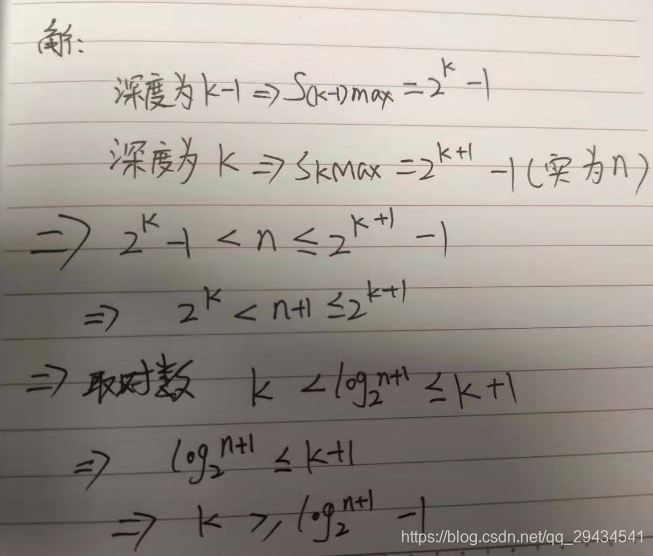 解:
深度为 k-1 => S(k-1)max = 2^k - 1
深度为 k => Skmax = 2^(k+1) - 1 (实为n)
=> 2^k - 1 < n ≤ 2^(k+1) - 1
=> 2^k < n+1 ≤ 2^(k+1)
=> 取对数 k < log₂^(n+1) ≤ k+1
=> log₂^(n+1) ≤ k+1
=> k ≥ log₂^(n+1) - 1
https://blog.csdn.net/qq_29434541